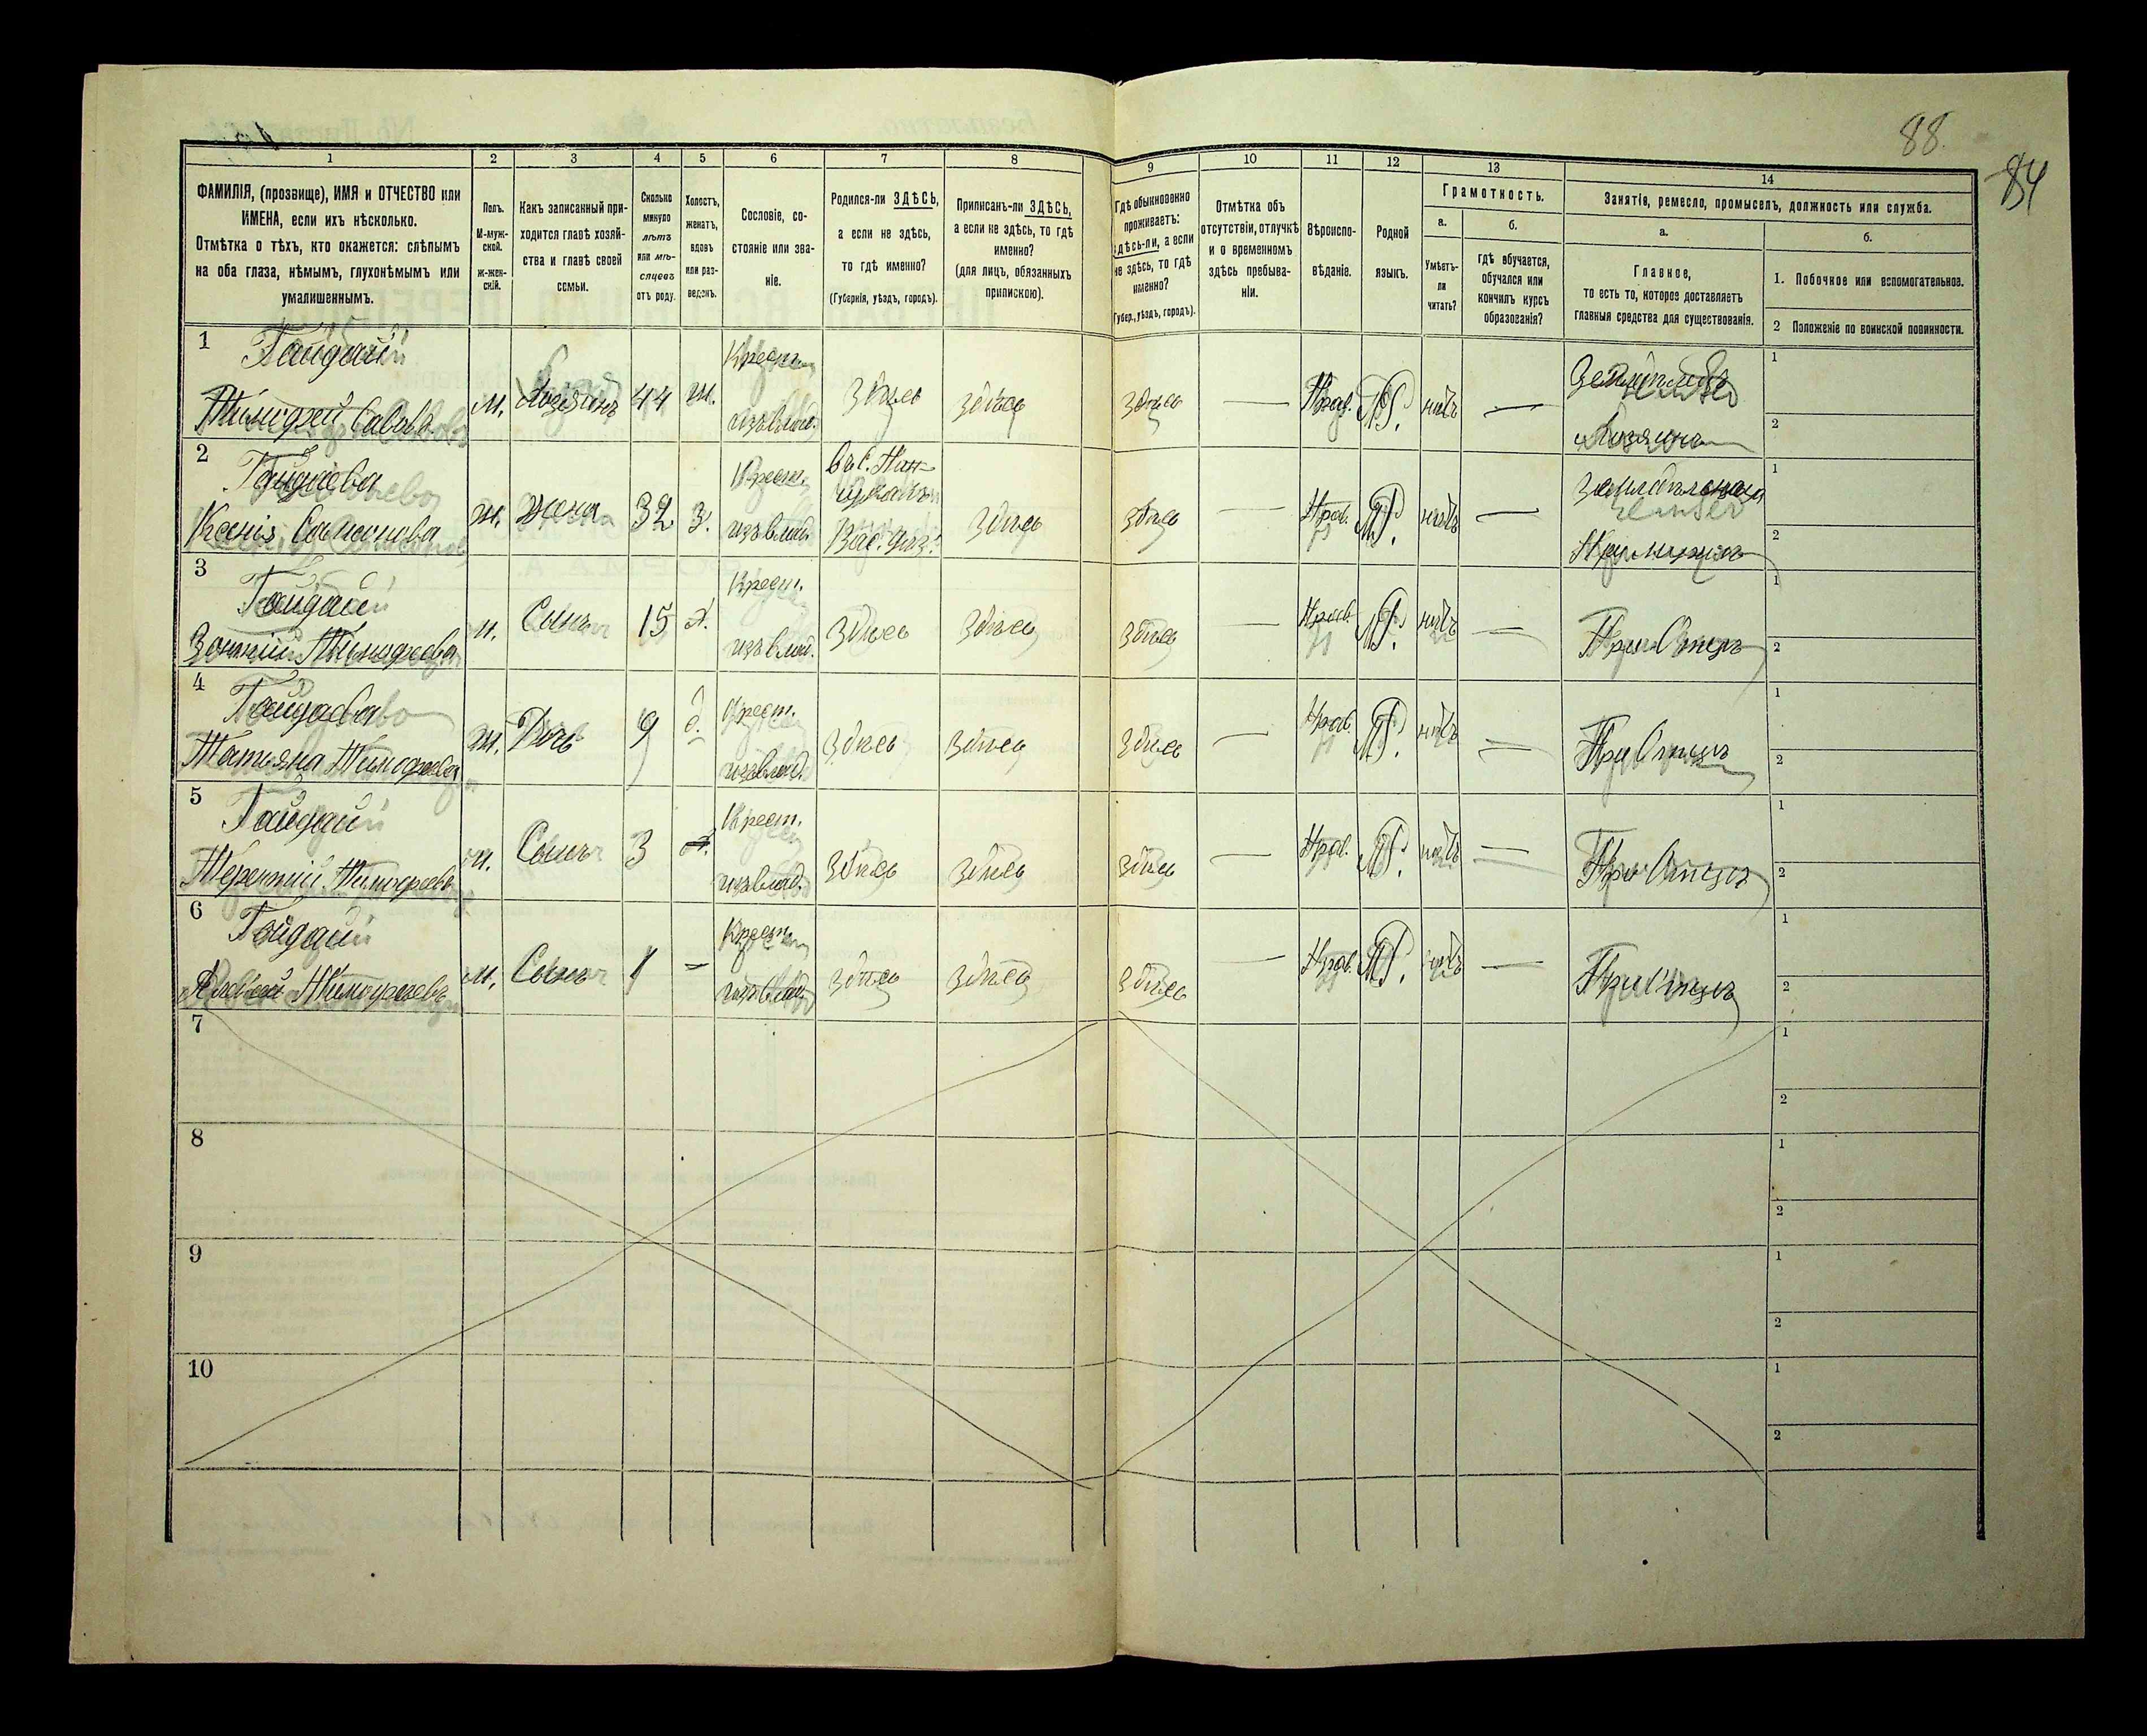 88.
84
1
2
3
4
5
6
7
8
9
10
11
12
13
14
ФАМИЛІЯ, (прозвище), ИМЯ и ОТЧЕСТВО или
ИМЕНА, если ихъ нѣсколько.
Отмѣтка о тѣхъ, кто окажется: слѣпымъ
на оба глаза, нѣмымъ, глухонѣмымъ или
умалишеннымъ.
Полъ.
М-муж-
ской.
ж-жен-
скій.
Какъ записанный при-
ходится главѣ хозяй-
ства и главѣ своей
семьи.
Сколько
минуло
лѣтъ
или мѣ-
сяцевъ
отъ роду.
Холостъ,
женатъ,
вдовъ
или раз-
веденъ.
Сословіе, со-
стояніе или зва-
ніе.
Родился-ли ЗДѢСЬ,
а если не здѣсь,
то гдѣ именно?
(Губернія, уѣздъ, городъ).
Приписанъ-ли ЗДѢСЬ,
а если не здѣсь, то гдѣ
именно?
(для лицъ, обязанныхъ
припискою).
Гдѣ обыкновенно
проживаетъ:
здѣсь-ли, а если
не здѣсь, то гдѣ
именно?
(Губер., уѣздъ, городъ).
Отмѣтка объ
отсутствіи, отлучкѣ
и о временномъ
здѣсь пребыва-
ніи.
Вѣроиспо-
вѣданіе.
Родной
языкъ.
Грамотность.
а.
Умѣетъ-
ли
читать?
б.
гдѣ обучается,
обучался или
кончилъ курсъ
образованія?
Занятіе, ремесло, промыселъ, должность или служба.
а.
Главное,
то есть то, которое доставляетъ
главныя средства для существованія.
б.
1. Побочное или вспомогательное.
2 Положеніе по воинской повинности.
1
Гайдай
Тимофей Савовъ.
м.
Хозяинъ
44
ж.
Крест.
изъ влад.
Здѣсь
Здѣсь
Здѣсь
—
Прав.
М.
нѣтъ
—
Хозяинъ
1
2
2
Гайдаева
Ксенія
ж.
жена
32
з.
Крест.
изъ влад.
Здѣсь
Здѣсь
—
Прав.
М.
нѣтъ
—
При мужѣ
1
2
3
Гайдай
Тимофеевъ
м.
Сынъ
15
х.
Крест.
изъ влад.
Здѣсь
Здѣсь
Здѣсь
—
Прав.
М.
нѣтъ
—
При Отцѣ
1
2
4
Гайдаева
Татьяна Тимофеева
ж.
Дочь
9
д.
Крест.
изъ влад.
Здѣсь
Здѣсь
Здѣсь
—
Прав.
М.
нѣтъ
—
При Отцѣ
1
2
5
Гайдай
Терентій Тимофеевъ
м.
Сынъ
3
Крест.
изъ влад.
Здѣсь
Здѣсь
Здѣсь
—
Прав.
М.
нѣтъ
—
При Отцѣ
1
2
6
Гайдай
Тимофеевъ
м.
Сынъ
1
—
Крест.
изъ влад.
Здѣсь
Здѣсь
Здѣсь
—
Прав.
М.
нѣтъ
—
При Отцѣ
1
2
7
1
2
8
1
2
9
1
2
10
1
2